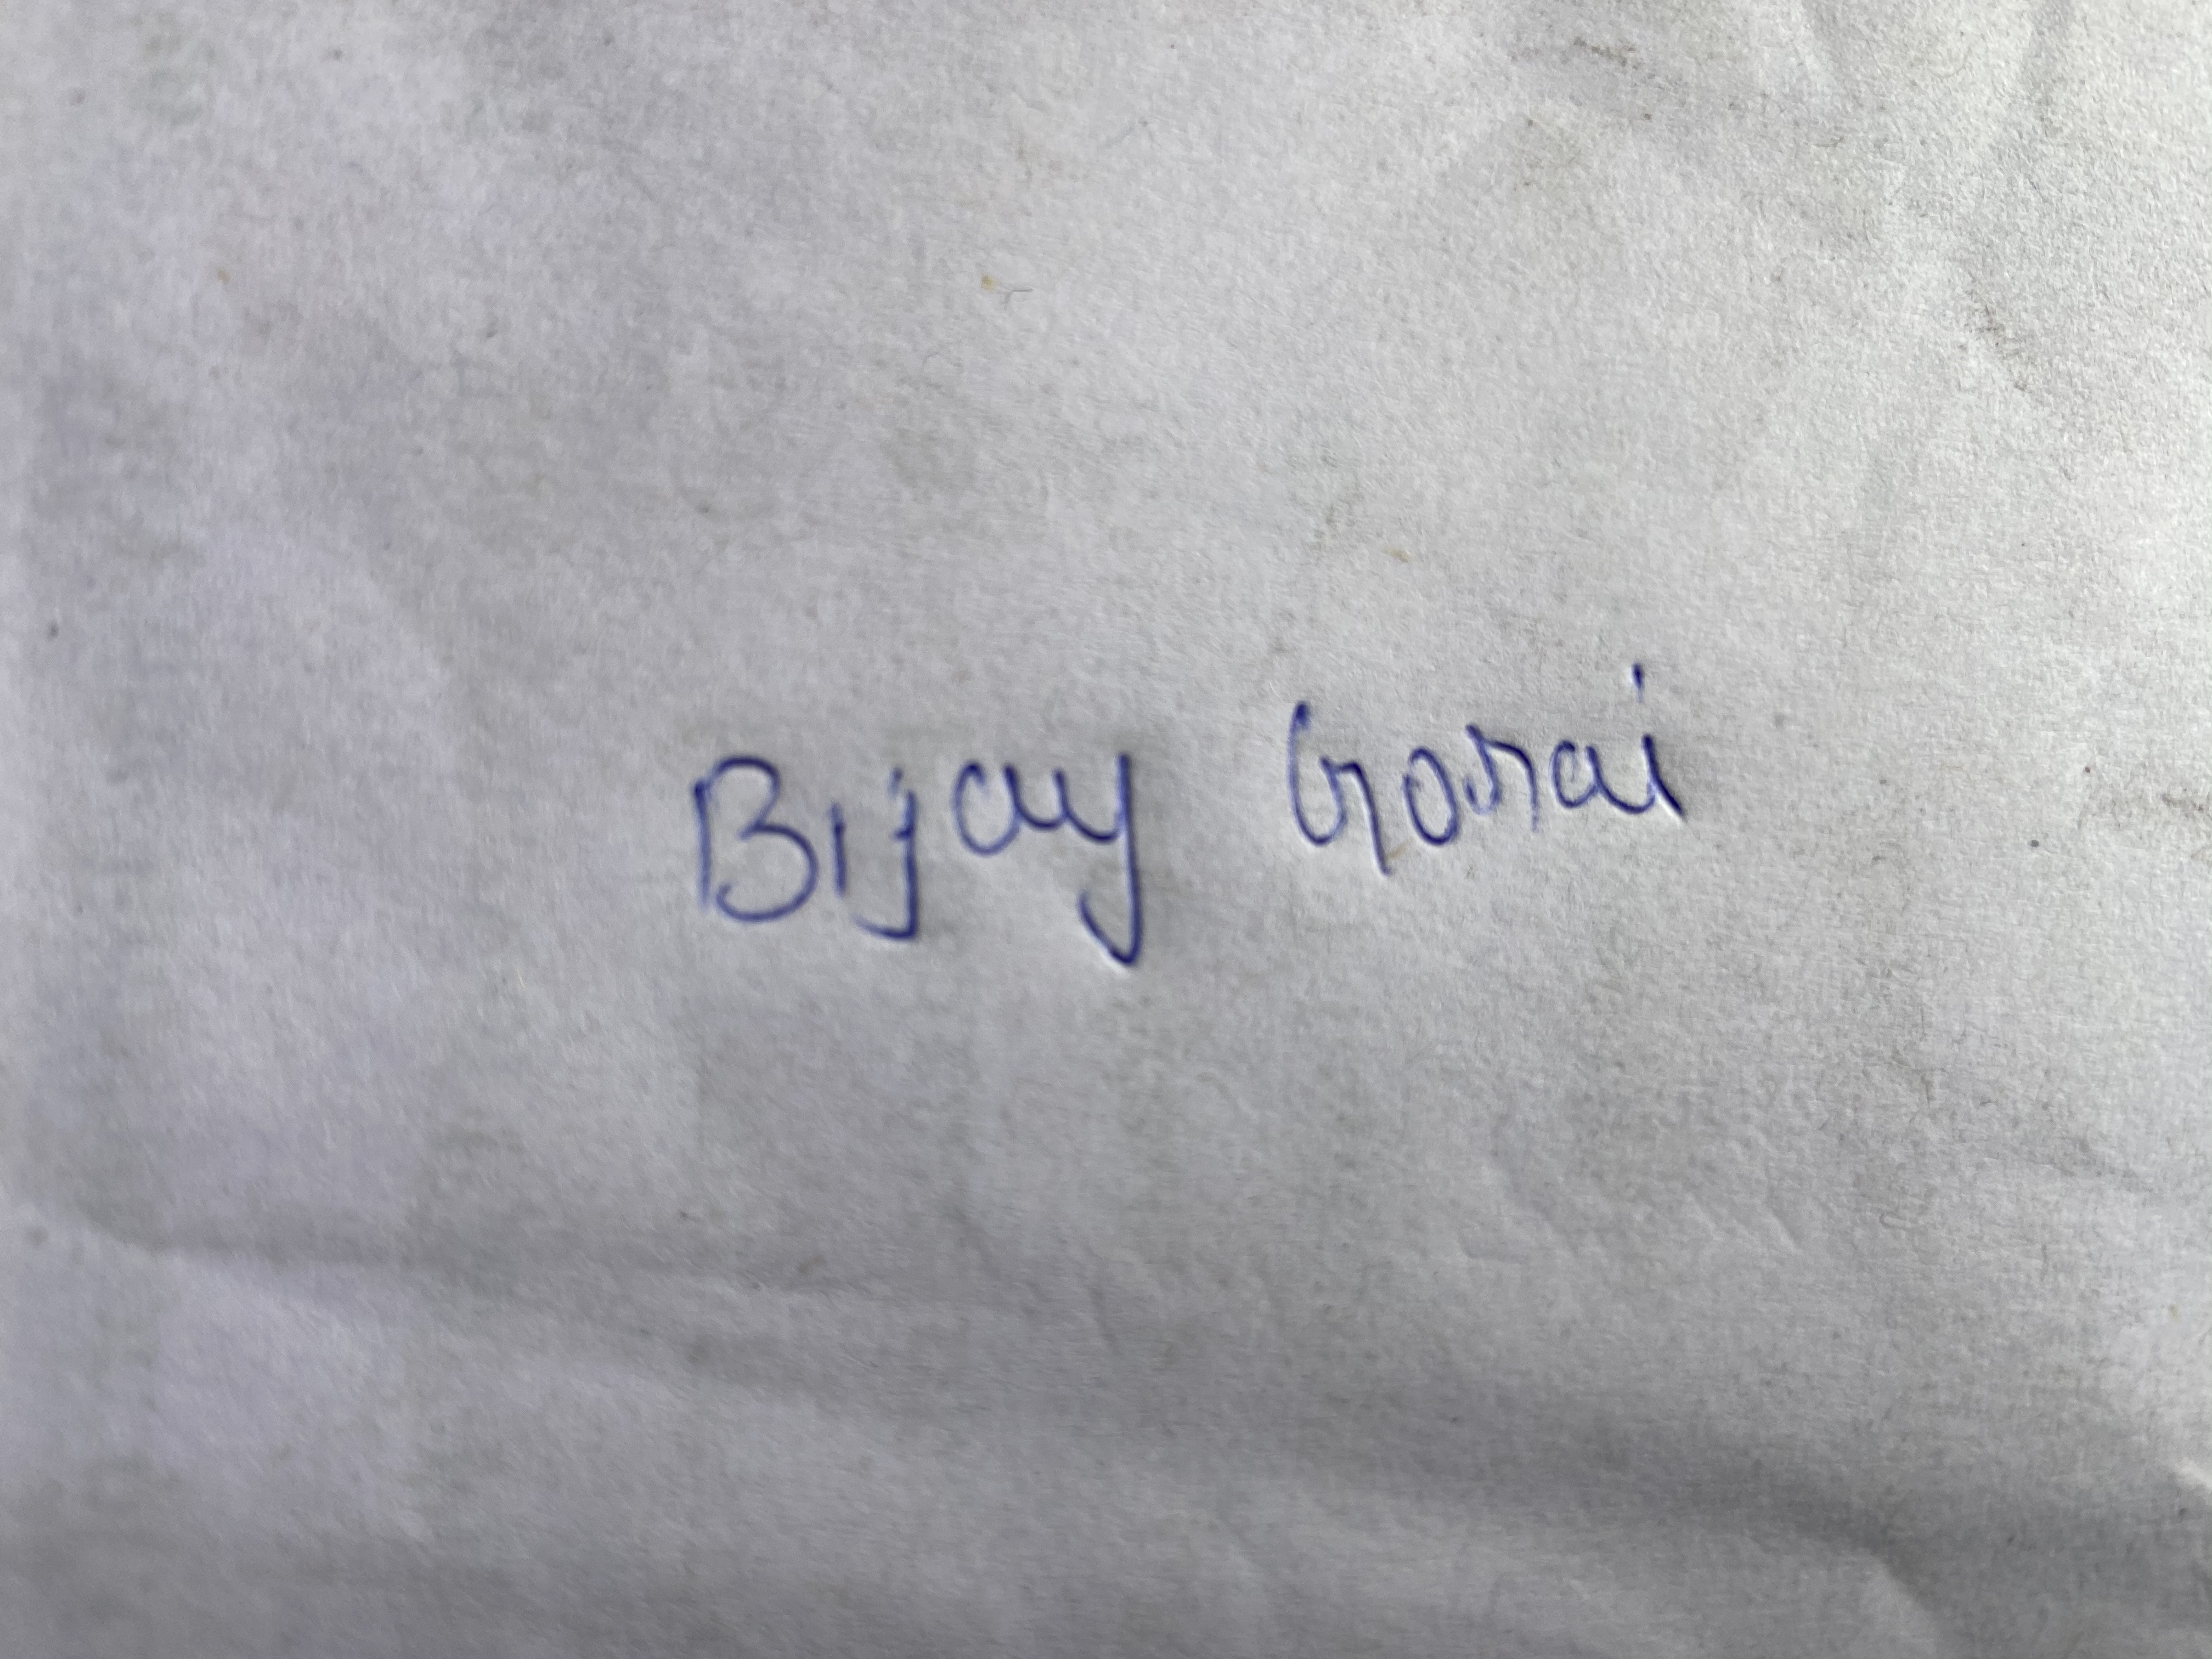 Bijay Gorai